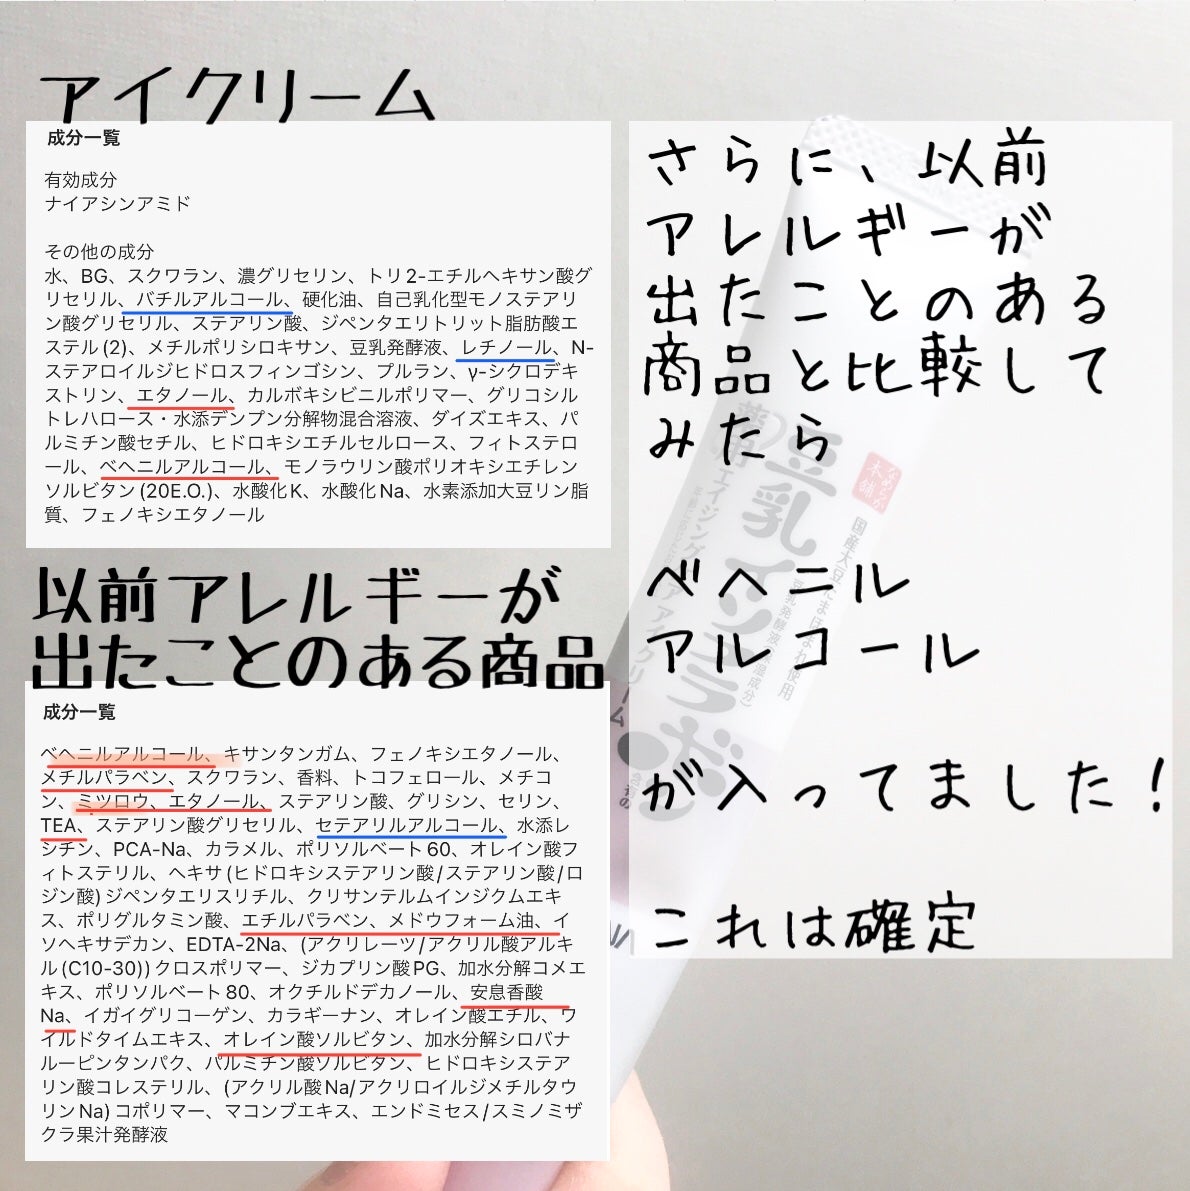 アイクリーム
成分一覧
有効成分
ナイアシンアミド
その他の成分
水、BG、スクワラン、濃グリセリン、トリ2-エチルヘキサン酸グ
リセリル、バチルアルコール、硬化油、自己乳化型モノステアリ
ン酸グリセリル、ステアリン酸、ジペンタエリトリット脂肪酸エ
ステル(2)、メチルポリシロキサン、豆乳発酵液、レチノール、N-
ステアロイルジヒドロスフィンゴシン、プルラン、γ-シクロデキ
ストリン、エタノール、カルボキシビニルポリマー、グリコシル
トレハロース・水添デンプン分解物混合溶液、ダイズエキス、パ
ルミチン酸セチル、ヒドロキシエチルセルロース、フィトステロ
ール、ベヘニルアルコール、モノラウリン酸ポリオキシエチレン
ソルビタン(20E.O.)、水酸化K、水酸化Na、水素添加大豆リン脂
質、フェノキシエタノール
以前アレルギーが
出たことのある商品
成分一覧
ベヘニルアルコール、キサンタンガム、フェノキシエタノール、
メチルパラベン、スクワラン、香料、トコフェロール、メチコ
ン、ミツロウ、エタノール、ステアリン酸、グリシン、セリン、
TEA、ステアリン酸グリセリル、セテアリルアルコール、水添レ
シチン、PCA-Na、カラメル、ポリソルベート60、オレイン酸フ
ィトステリル、ヘキサ(ヒドロキシステアリン酸/ステアリン酸/ロ
ジン酸)ジペンタエリスリチル、クリサンテルムインジクムエキ
ス、ポリグルタミン酸、エチルパラベン、メドウフォーム油、イ
ソヘキサデカン、EDTA-2Na、(アクリレーツ/アクリル酸アルキ
ル(C10-30))クロスポリマー、ジカプリン酸PG、加水分解コメエ
キス、ポリソルベート80、オクチルドデカノール、安息香酸
Na、イガイグリコーゲン、カラギーナン、オレイン酸エチル、ワ
イルドタイムエキス、オレイン酸ソルビタン、加水分解シロバナ
ルーピンタンパク、パルミチン酸ソルビタン、ヒドロキシステア
リン酸コレステリル、(アクリル酸Na/アクリロイルジメチルタウ
リンNa)コポリマー、マコンブエキス、エンドミセス/スミノミザ
クラ果汁発酵液
さらに、以前
アレルギーが
出たことのある
商品と比較して
みたら
ベヘニル
アルコール
が入ってました！
これは確定
なめらか
本舗
豆乳イソフラボン